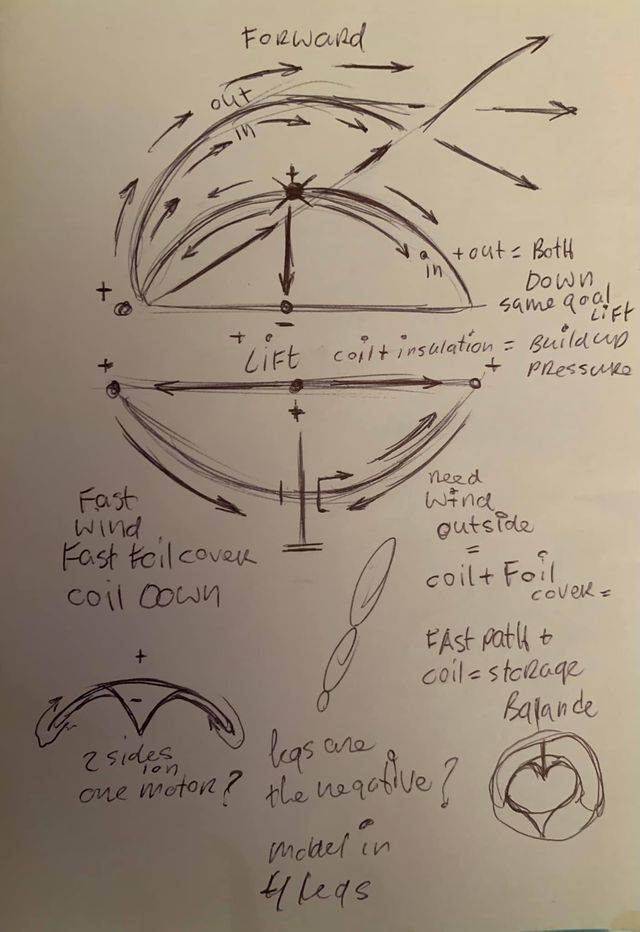 FORWARD
out
in
+
in
+ out = Both
DOWN
same goal
LIFT
+
-
+ LIFT
coil + insulation = Build up
PRESSURE
+
+
+
Fast
wind
Fast Foil cover
coil DOWN
need
wind
outside
=
coil + Foil
cover =
FAst path +
coil = storage
+
-
2 sides
ion
one motor?
legs are
the negative?
model in
4 legs